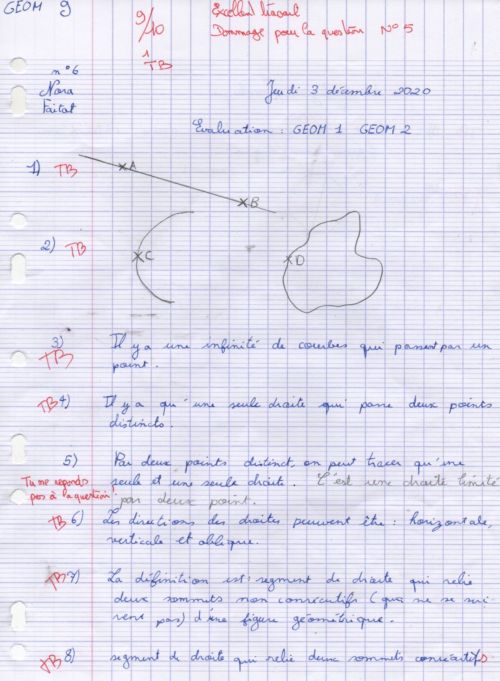 GEOM 9
9/10
Excellent travail
Dommage pour la question N°5
TB
n°6
Nora
Jeudi 3 décembre 2020
Evaluation : GEOM 1 GEOM 2
1) TB
A
B
2) TB
C
D
3) Il y a une infinité de courbes qui passent par un
TB
point.
TB 4) Il y a qu'une seule droite qui passe deux points
distincts.
5) Par deux points distinct, on peut tracer qu'une
seule et une seule droite. C'est une droite limité
Tu ne réponds
pas à la question!
par deux point.
TB 6) Les directions des droites peuvent être : horizontale,
verticale et oblique.
TB 7) La définition est : segment de droite qui relie
deux sommets non consécutifs (qui ne se sui-
vent pas) d'une figure géométrique.
TB 8) segment de droite qui relie deux sommets consécutifs